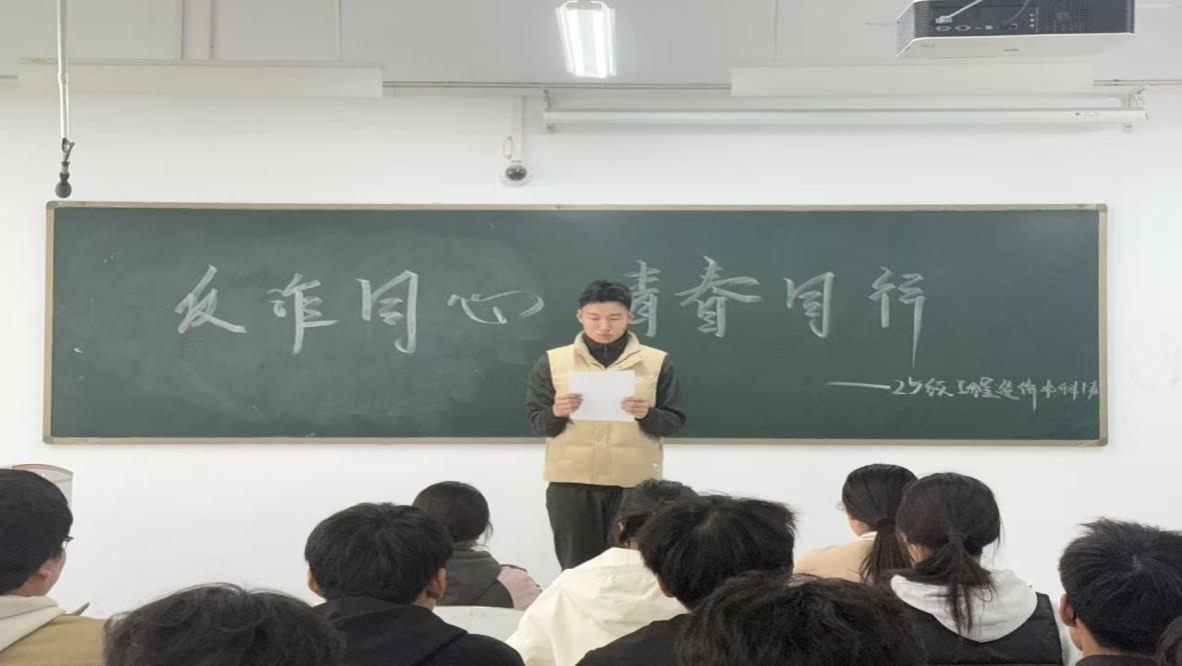 反诈同心 青春同行
——25级工程造价本科1